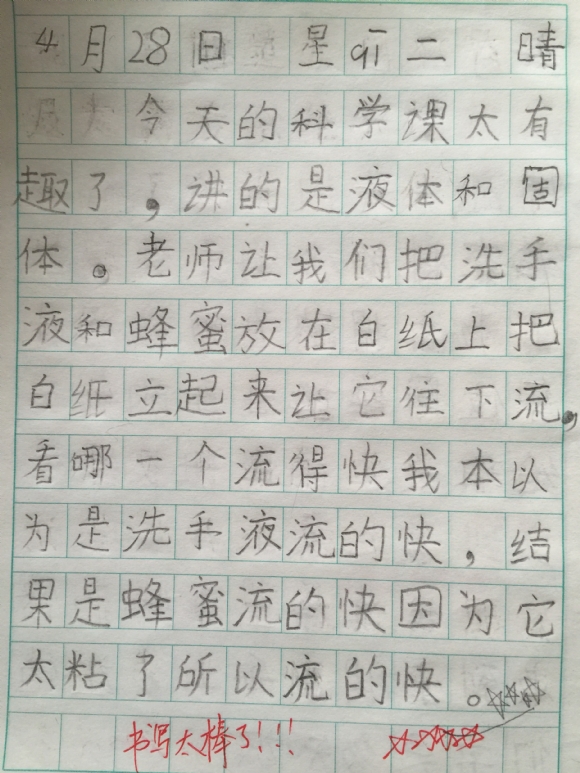 4月28日 星qī二 晴
今天的科学课太有
趣了，讲的是液体和固
体。老师让我们把洗手
液和蜂蜜放在白纸上把
白纸立起来让它往下流，
看哪一个流得快我本以
为是洗手液流的快，结
果是蜂蜜流的快因为它
太粘了所以流的快。
书写太棒了!!!